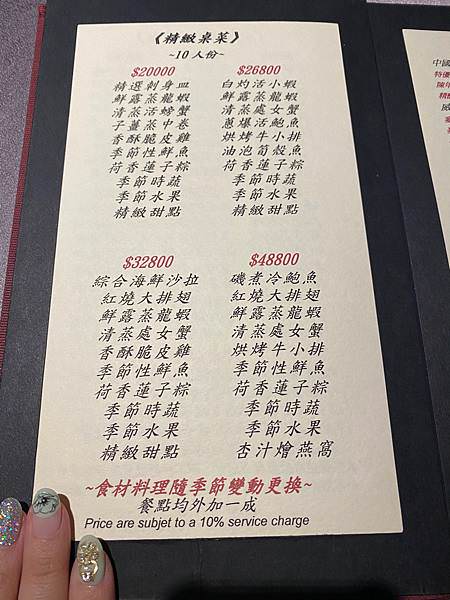 《精緻桌菜》
~10人份~
$20000
精選刺身皿
鮮露蒸龍蝦
清蒸活螃蟹
子薑蒸中卷
香酥脆皮雞
季節性鮮魚
荷香蓮子粽
季節時蔬
季節水果
精緻甜點
$26800
白灼活小蝦
鮮露蒸龍蝦
清蒸處女蟹
蔥爆活鮑魚
烘烤牛小排
油泡筍殼魚
荷香蓮子粽
季節時蔬
季節水果
精緻甜點
$32800
綜合海鮮沙拉
紅燒大排翅
鮮露蒸龍蝦
清蒸處女蟹
香酥脆皮雞
季節性鮮魚
荷香蓮子粽
季節時蔬
季節水果
精緻甜點
$48800
磯煮冷鮑魚
紅燒大排翅
鮮露蒸龍蝦
清蒸處女蟹
烘烤牛小排
季節性鮮魚
荷香蓮子粽
季節時蔬
季節水果
杏汁燴燕窩
~食材料理隨季節變動更換~
餐點均外加一成
Price are subjet to a 10% service charge
中國
特優
陳年